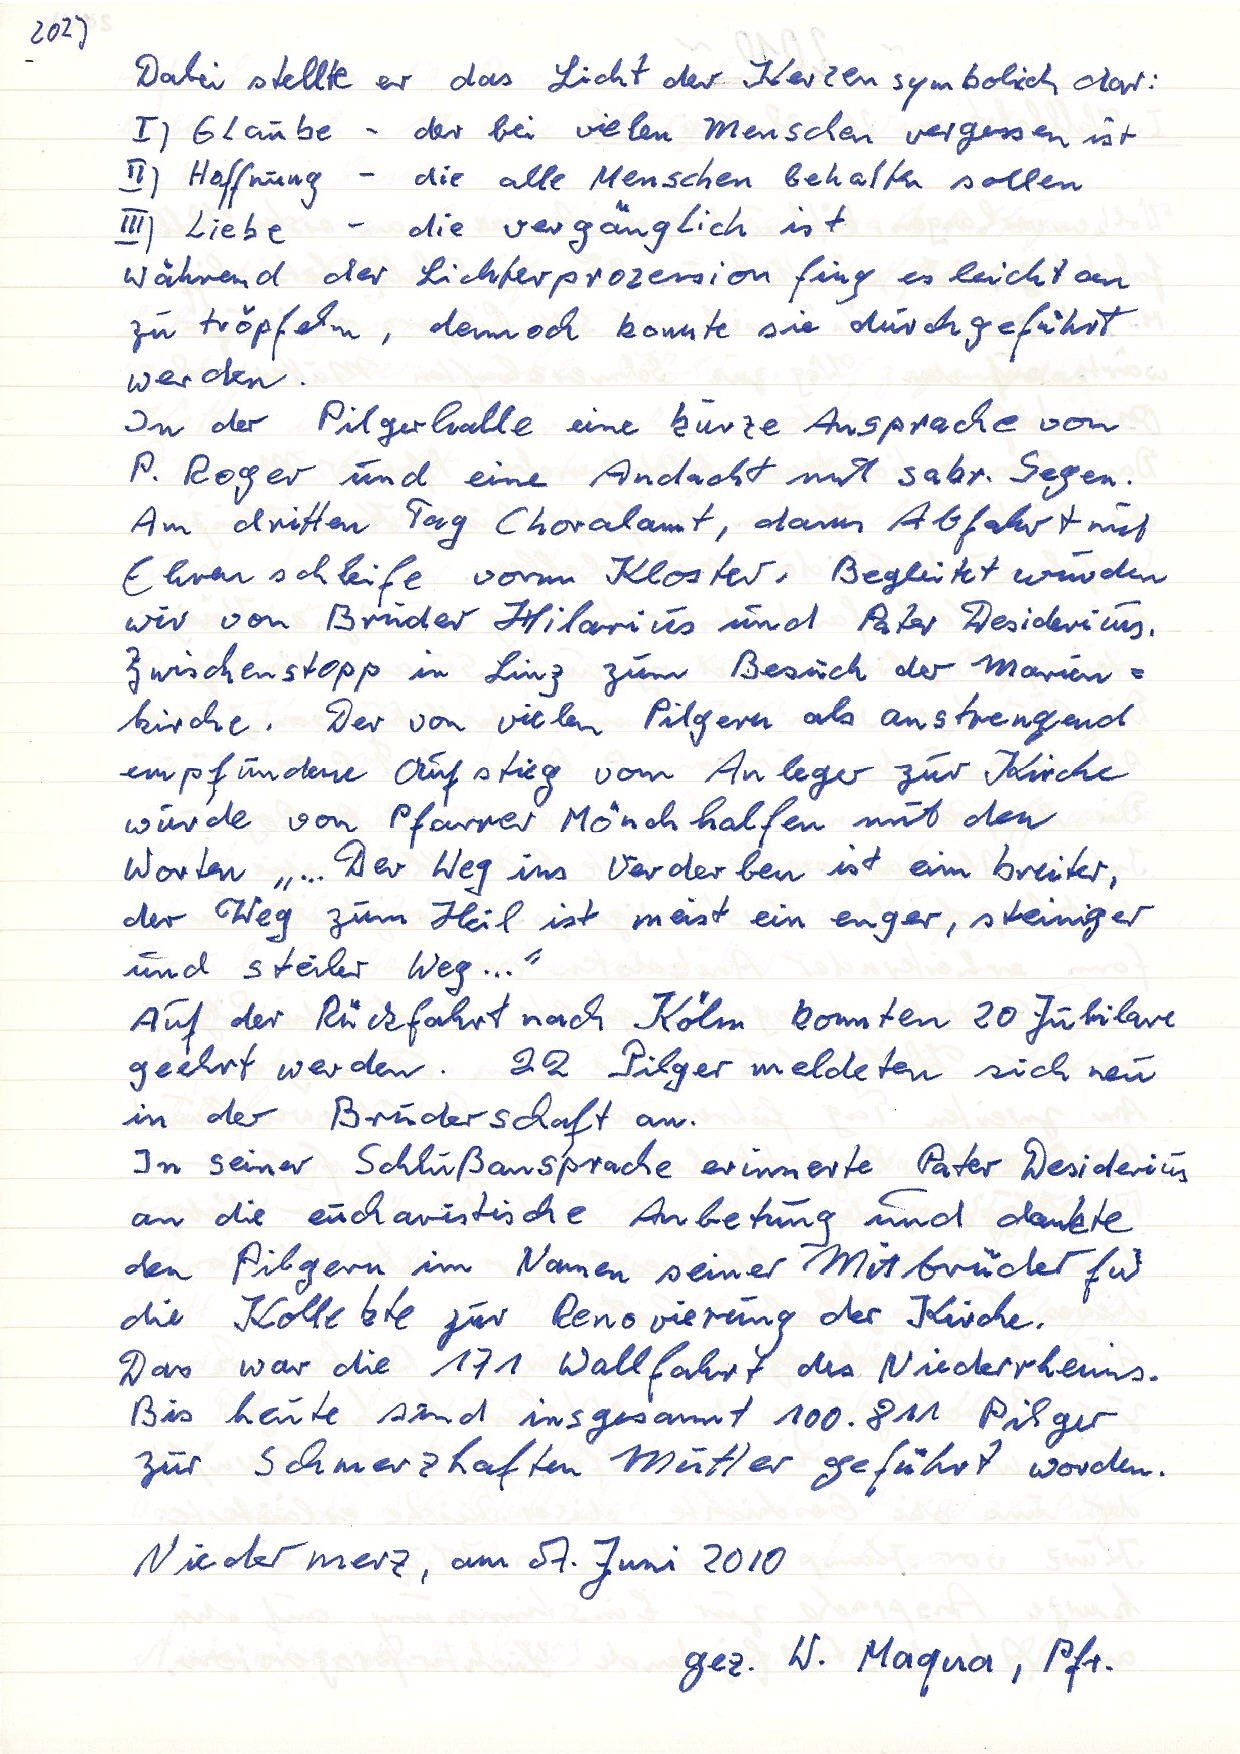 202)
Dabei stellte er das Licht der Kerzen symbolisch dar:
I) Glaube - der bei vielen Menschen vergessen ist
II) Hoffnung - die alle Menschen behalten sollen
III) Liebe - die vergänglich ist
Während der Lichterprozession fing es leicht an
zu tröpfeln, dennoch konnte sie durchgeführt
werden.
In der Pilgerhalle eine kurze Ansprache von
P. Roger und eine Andacht mit sakr. Segen.
Am dritten Tag Choralamt, dann Abfahrt mit
Ehrenschleife vorm Kloster. Begleitet wurden
wir von Bruder Hilarius und Pater Desiderius.
Zwischenstopp in Linz zum Besuch der Marien=
kirche. Der von vielen Pilgern als anstrengend
empfundene Aufstieg vom Anleger zur Kirche
wurde von Pfarrer Mönchhalfen mit den
Worten „... Der Weg ins Verderben ist ein breiter,
der Weg zum Heil ist meist ein enger, steiniger
und steiler Weg..."
Auf der Rückfahrt nach Köln konnten 20 Jubilare
geehrt werden. 22 Pilger meldeten sich neu
in der Bruderschaft an.
In seiner Schlußansprache erinnerte Pater Desiderius
an die eucharistische Anbetung und dankte
den Pilgern im Namen seiner Mitbrüder für
die Kollekte zur Renovierung der Kirche.
Das war die 171 Wallfahrt des Niederrheins.
Bis heute sind insgesamt 100.811 Pilger
zur Schmerzhaften Mutter geführt worden.
Niedermerz, am 07. Juni 2010
gez. W. Maqua, Pfr.